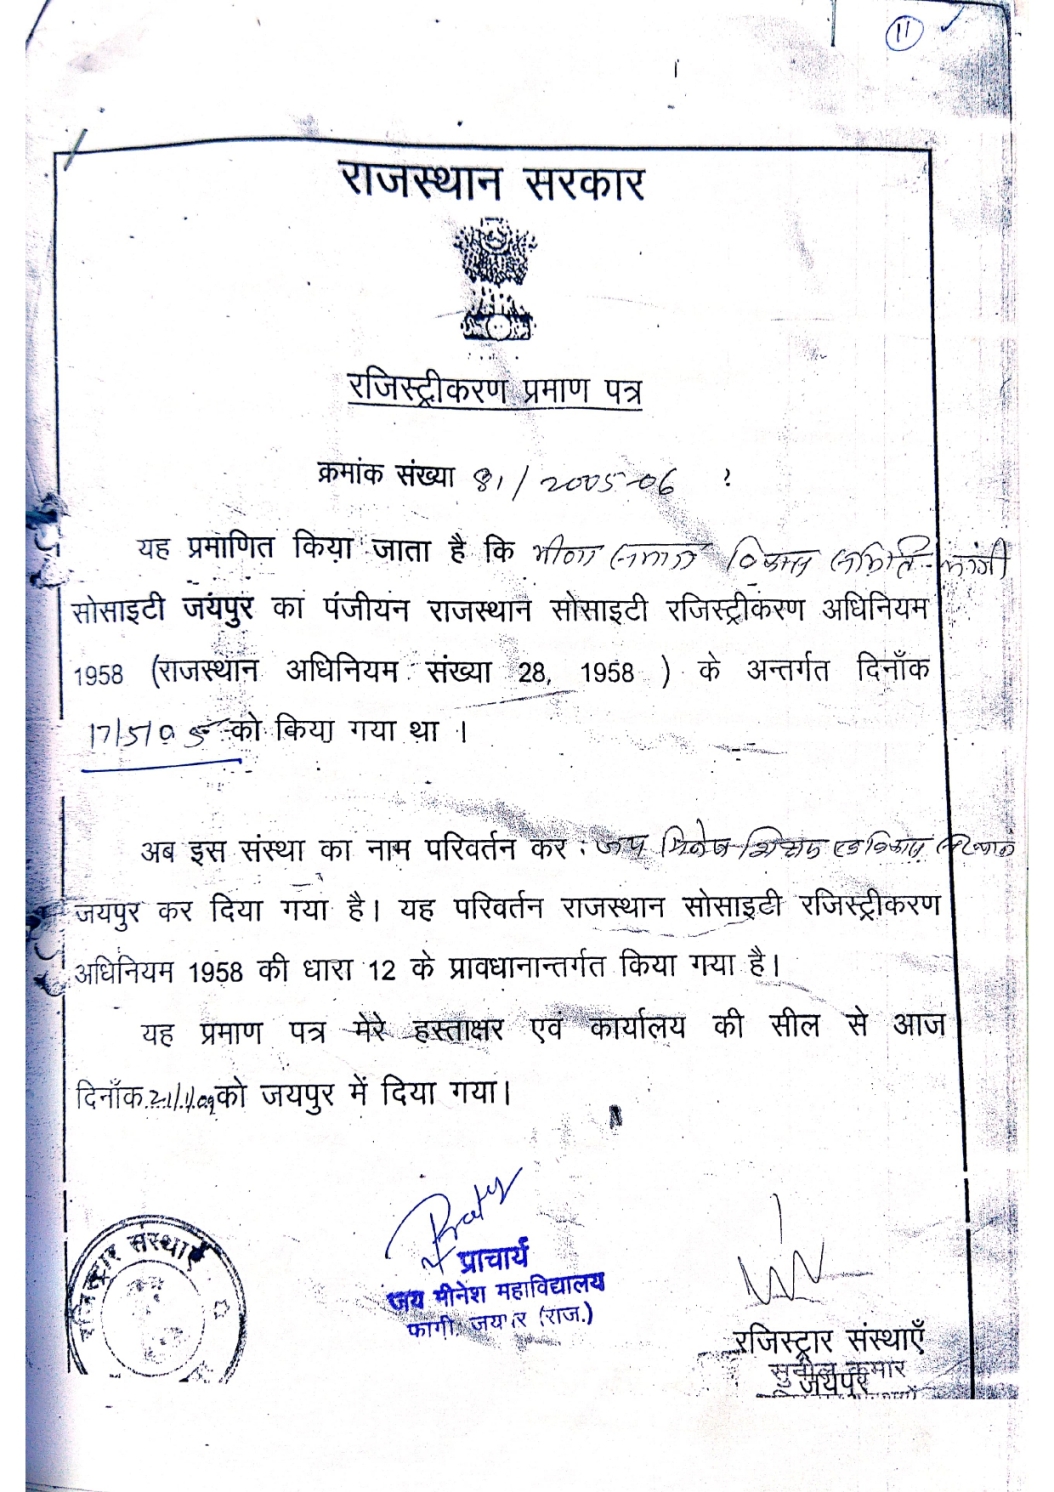 11
राजस्थान सरकार
रजिस्ट्रीकरण प्रमाण पत्र
क्रमांक संख्या 81/2005-06
यह प्रमाणित किया जाता है कि मीणा समाज विकास समिति-
सोसाइटी जयपुर का पंजीयन राजस्थान सोसाइटी रजिस्ट्रीकरण अधिनियम
1958 (राजस्थान अधिनियम संख्या 28, 1958 ) के अन्तर्गत दिनाँक
17/5/05 को किया गया था ।
अब इस संस्था का नाम परिवर्तन कर : जय
जयपुर कर दिया गया है। यह परिवर्तन राजस्थान सोसाइटी रजिस्ट्रीकरण
अधिनियम 1958 की धारा 12 के प्रावधानान्तर्गत किया गया है।
यह प्रमाण पत्र मेरे हस्ताक्षर एवं कार्यालय की सील से आज
दिनाँक को जयपुर में दिया गया।
रजिस्ट्रार संस्थाएँ
प्राचार्य
जय मीनेश महाविद्यालय
फागी, जयपुर (राज.)
रजिस्ट्रार संस्थाएँ
सुनील कुमार
जयपुर